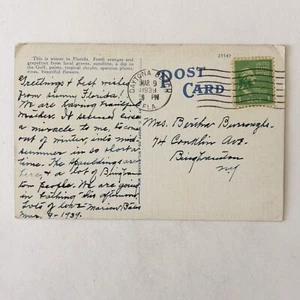 This is winter in Florida. Fresh oranges and
grapefruit from local groves, sunshine, a dip in
the Gulf, palms, tropical shrubs,
vines, beautiful flowers.
Greetings & best wishes
from sunny Florida!
We are having beautiful
weather. It seems like
a miracle to me, to come
out of winter into mid-
summer in so short a
time. The Spauldings are
here, & a lot of Bingham-
ton people. We are going
in bathing this afternoon.
Lots of love
Mar. 9 - 1939.
DAYTONA BEACH
MAR 9
1939
PM
FLA.
POST
CARD
Mrs. Bertha Burroughs.
74 Conklin Ave.
Binghamton
N.Y.